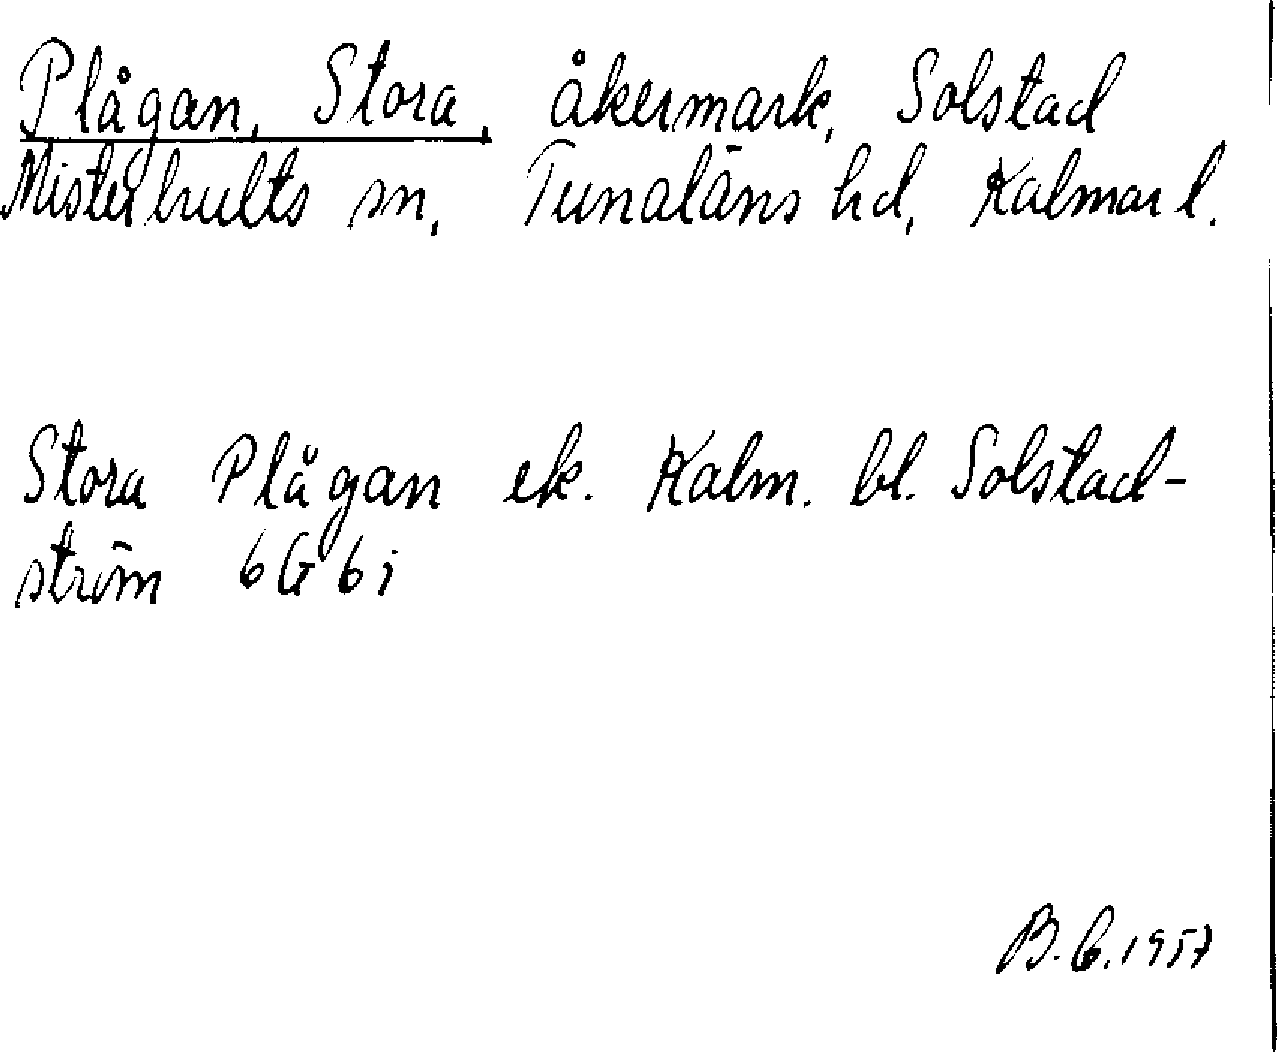 Plågan, Stora, åkermark, Solstad
Misterhults sn, Tunaläns hd, Kalmar l.
Stora Plågan ek. Kalm. bl. Solstad-
ström 6G 6i
B.G. 1957